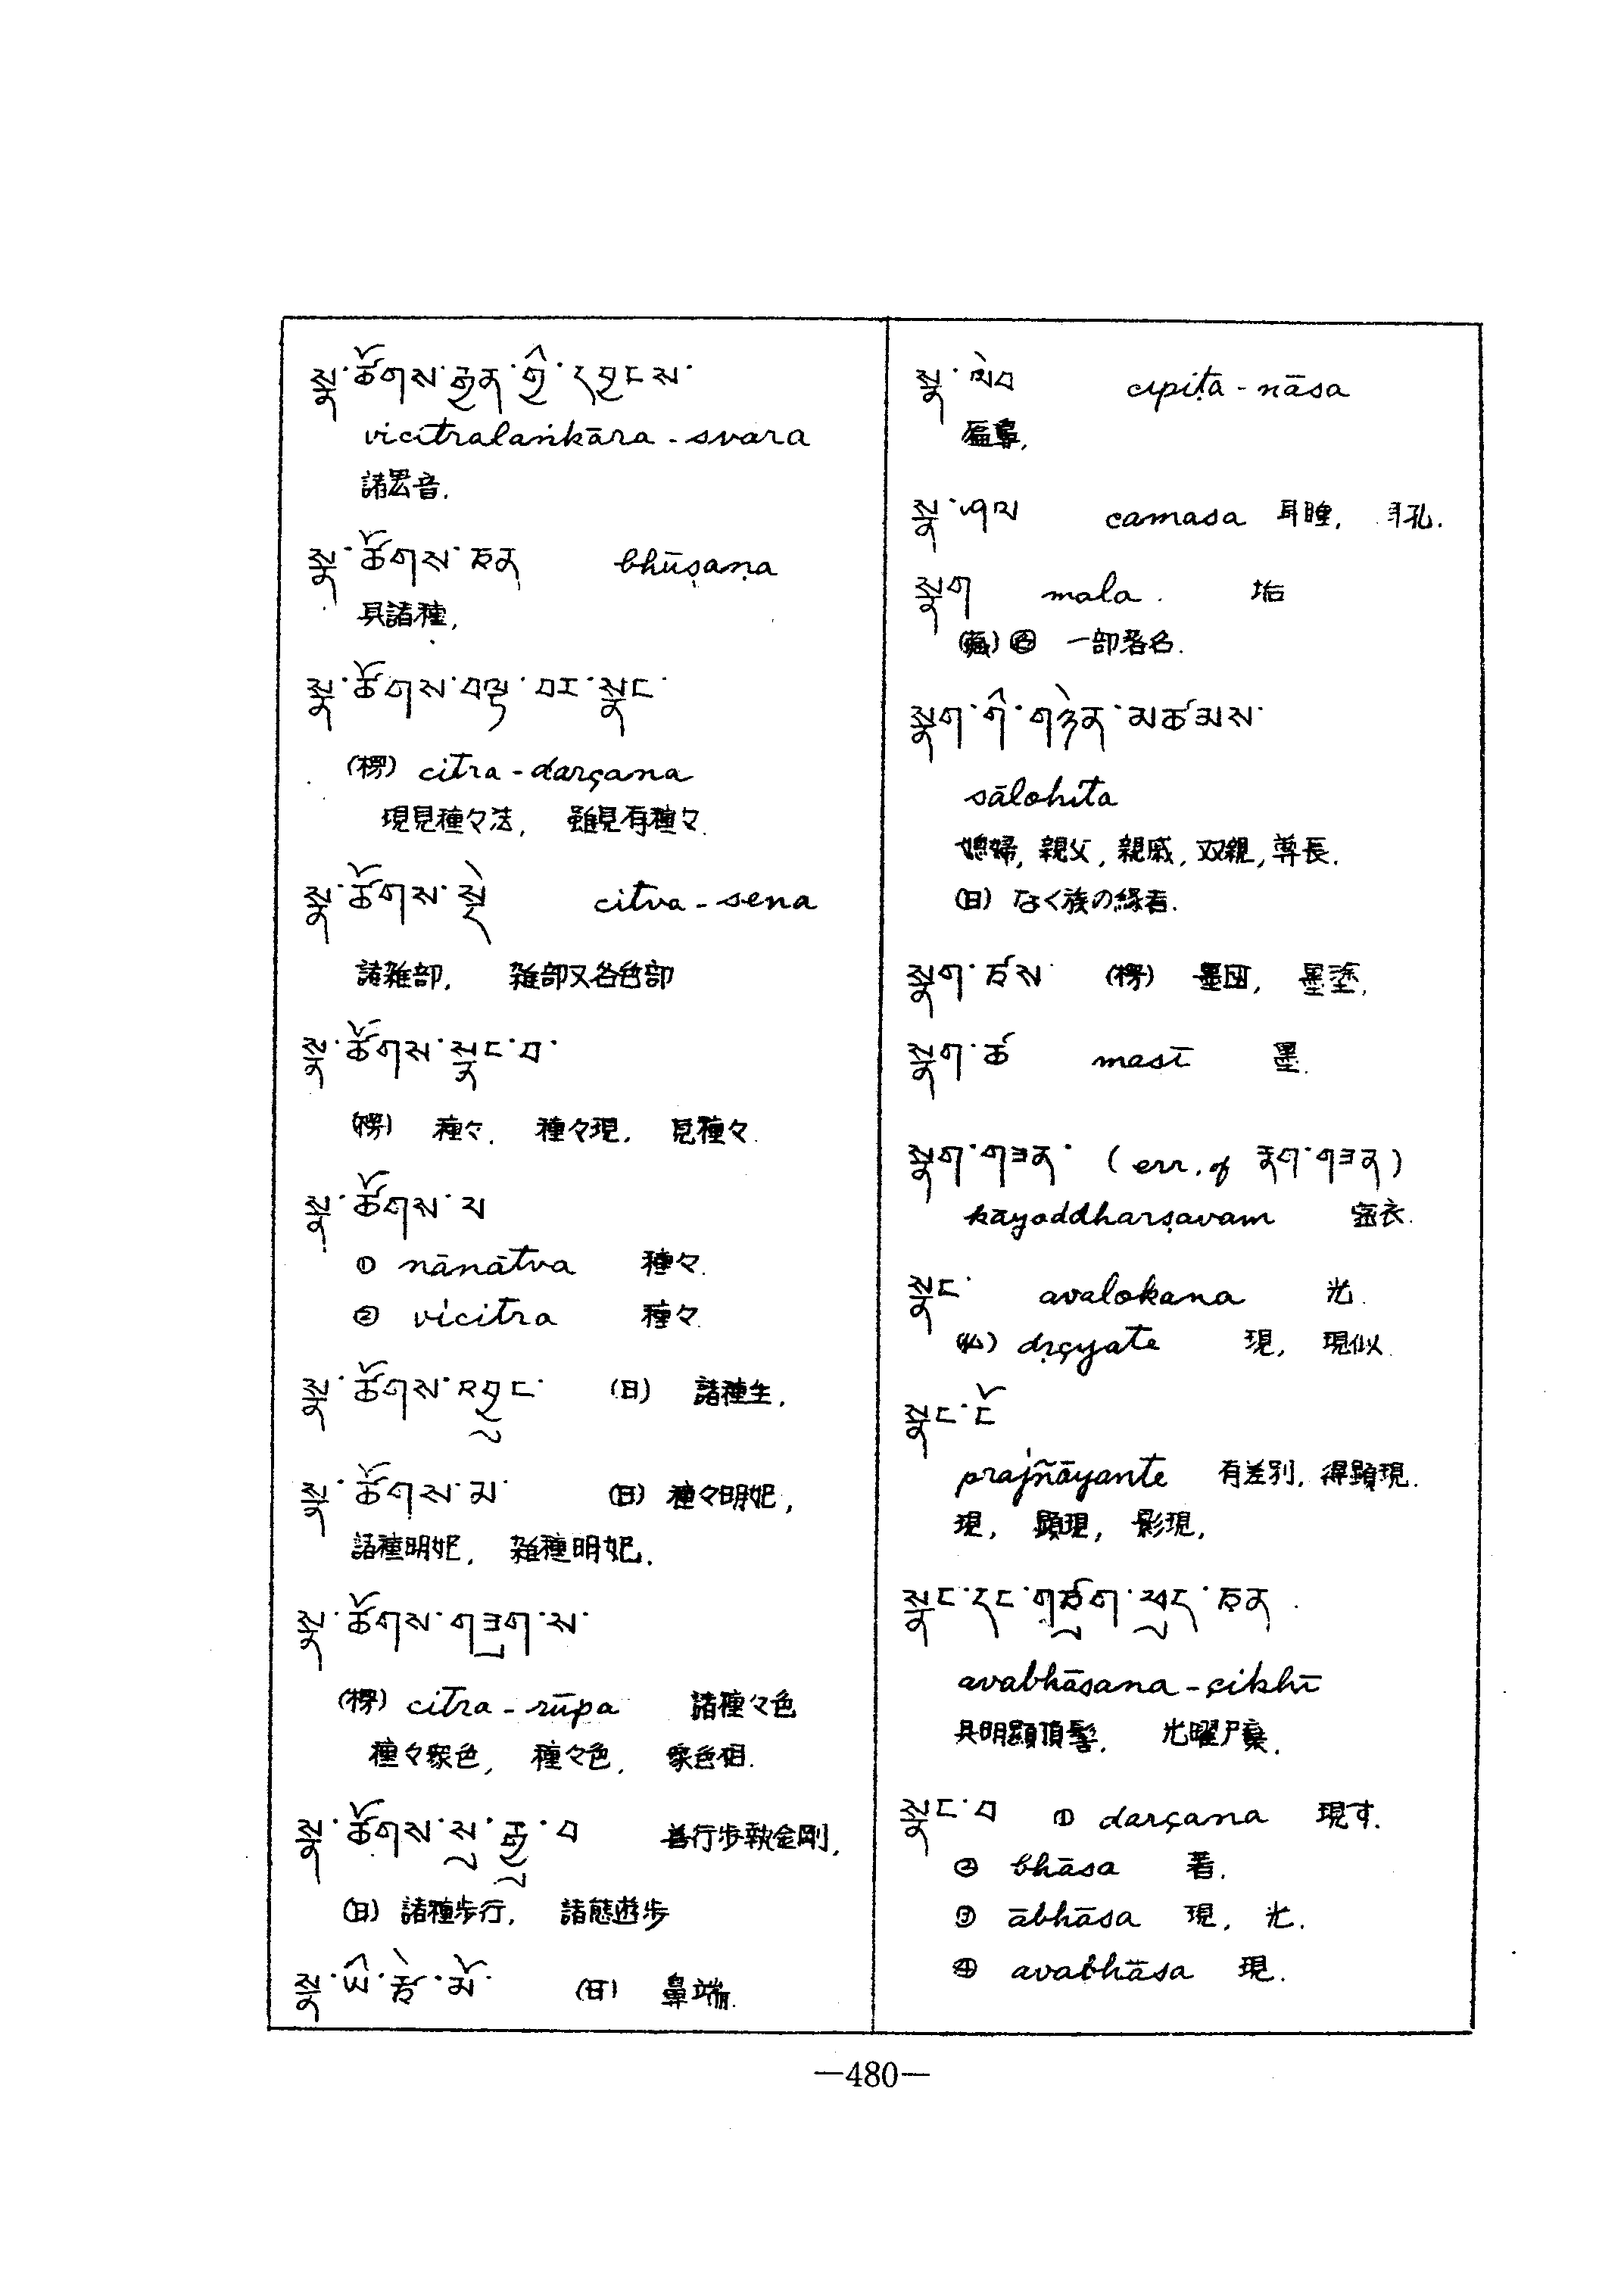 སྣ་ཚོགས་རྒྱན་གྱི་དབྱངས་
vicitralaṅkāra - svara
སྣ་ཚོགས་ཅན bhūṣaṇa
具諸種,
སྣ་ཚོགས་བལྟ་བར་སྣང་
(楞) citra - darçana
現見種々法, 雖見有種々.
སྣ་ཚོགས་སྡེ citva - sena
諸雑部, 雑部又各色部
སྣ་ཚོགས་སྣང་བ་
(楞) 種々. 種々現. 見種々.
སྣ་ཚོགས་པ
① nānātva 種々.
② vicitra 種々.
སྣ་ཚོགས་འབྱུང་ (日) 諸種生.
སྣ་ཚོགས་མ་ (日) 種々明妃,
諸種明妃, 雑種明妃.
སྣ་ཚོགས་གཟུགས་
(楞) citra - rūpa 諸種々色
種々衆色, 種々色, 衆色相.
སྣ་ཚོགས་སུ་རྒྱུ་བ 善行歩執金剛,
(日) 諸種歩行, 諸態遊歩
སྣ་ཡི་རྩེ་མོ་ (日) 鼻端.
སྣ་ལེབ cipiṭa - nāsa
匾鼻,
སྣ་ཤལ camasa 耳睡, 耳孔.
སྣག mala. 垢
一部落名.
སྣག་གི་གཉེན་མཚམས་
sālohita
媳婦, 親父, 親戚, 双親, 尊長.
(日) なく族の縁者.
(楞) 墨団, 墨塗.
masī 墨.
སྣག་གཟན་ (err. of རྣག་གཟན)
kāyoddharṣavam
སྣང་ avalokana 光.
dṛçyate 現, 現似.
སྣང་ངོ
prajñāyante 有差別, 得顕現.
現, 顕現, 影現,
སྣང་དང་གཙུག་ཕུད་ཅན.
avabhāsana - çikhī
具明顕頂髻, 光曜尸棄.
སྣང་བ ① darçana 現す.
② bhāsa 著.
③ ābhāsa 現, 光.
④ avabhāsa 現.
—480—